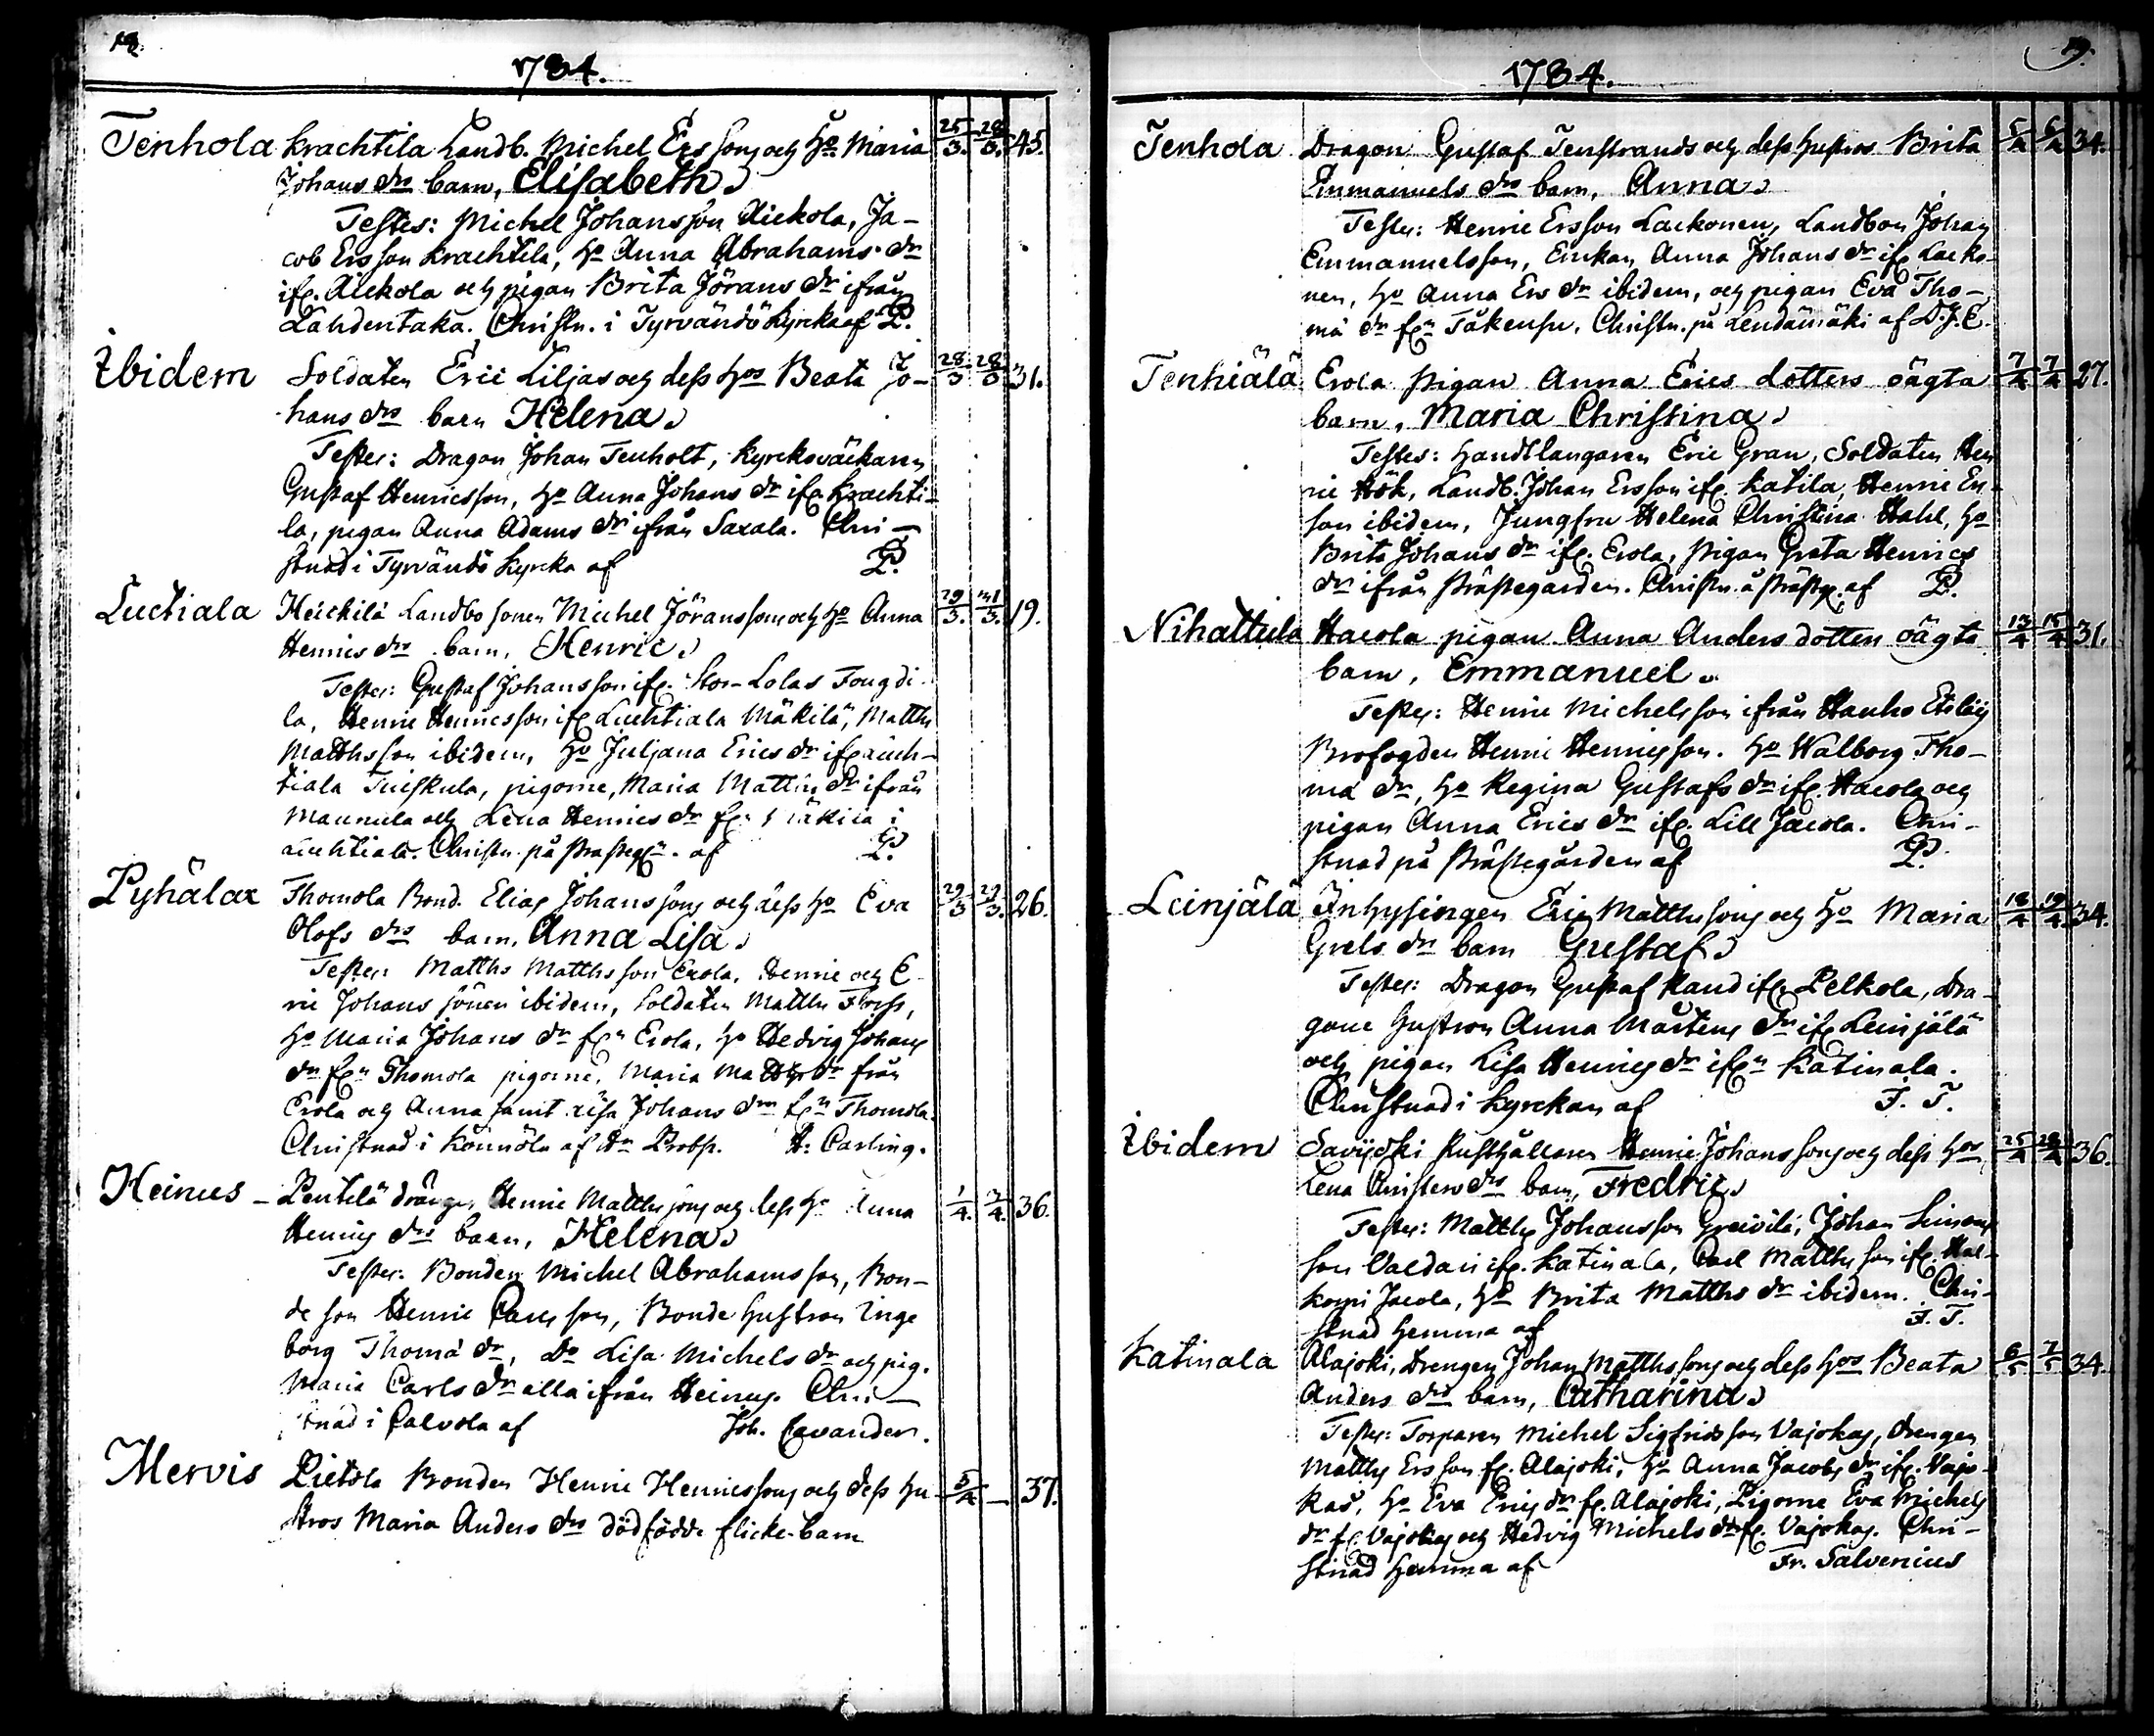 18.
1784.
Tenhola Krachtila Landb. Michel Ers sons och Ho Maria 25/3. 28/3. 45.
Johans drs barn, Elisabeth.
Testes: Michel Johansson Aickola, Ja-
cob Ersson Krachtila, Ho Anna Abrahams dr
ifr. Aickola och pigan Brita Jörans dr ifrån
Lahdentaka. Christn. i Tyrvändö Kyrcka af P.
Ibidem Soldaten Eric Liljas och dess Hos Beata Jo- 28/3 28/3 31.
hans drs barn Helena.
Testes: Dragon Johan Tenholt, Kyrckoväckaren
Gustaf Henricsson, Ho Anna Johans dr ifr. Krachti-
la, pigan Anna Adams dr ifrån Saxala. Chri-
stnad i Tyrvändö Kyrcka af P.
Luctiala Heickilä Landbo sonen Michel Jöranssons och Ho Anna 29/3. 31/3. 19.
Henrics drs barn, Henric.
Testes: Gustaf Johansson ifr. Stor-Lolas Fougdi-
la, Henric Henricsson ifr Luchtiala Mäkilä, Matths
Matthsson ibidem, Ho Juljana Erics dr ifr Luch-
tiala Tuiskula, pigorne, Maria Matths dr ifrån
Maunula och Lena Henrics dr frn Mäkilä i
Luchtiala. Christn. på Prästegn. af P.
Pyhälax Thomola Bond. Elias Johans sons och dess Ho Eva 29/3 29/3. 26.
Olofs drs barn, Anna Lisa.
Testes: Matths Matthsson Erola, Henric och E-
ric Johans söner ibidem, Soldaten Matths Forss,
Ho Maria Johans dr frn Erola, Ho Hedvig Johans
dr frn Thomola pigorne, Maria Matths dr från
Erola och Anna samt Lisa Johans drar frn Thomola.
Christnad i Konnöla af Hr Probst. H: Carling.
Heinus - Pentelä drängen Henric Matths sons och dess Ho Anna 1/4. 2/4. 36.
Henrics drs barn, Helena.
Testes: Bonden Michel Abrahamsson, Bon-
de son Henric Carlsson, Bonde hustron Inge
borg Thomæ dr, Do Lisa Michels dr och pig.
Maria Carls dr alla ifrån Heinus. Chri-
stnad i Calvola af Joh. Cavander.
Mervis Pietola Bonden Henric Henrics sons och dess hu- 5/4 — 37.
stros Maria Anders drs dödfödde flicke-barn
19.
1784.
Tenhola Dragon Gustaf Tenstrands och dess hustros Brita 5/4 5/4 34.
Emmanuels drs barn, Anna.
Testes: Henric Ersson Lackonen, Landbon Johan
Emmanuelsson, Enkan Anna Johans dr ifr Lacko-
nen, Ho Anna Ers dr ibidem, och pigan Eva Tho-
mæ dr frn . Christn. på Lendämäki af D.J.E.
Tenhiälä Erola Pigan Anna Erics dotters oägta 7/4 7/4 27.
barn, Maria Christina.
Testes: Handtlangaren Eric Gran, Soldaten Hen
ric Hök, Landb. Johan Ersson ifr. Katila, Henric Er-
son ibidem, Jungfru Helena Christina Hahl, Ho
Brita Johans dr ifr. Erola, Pigan Greta Henrics
dr ifrån Prästegården. Christn. å Prästg. af P.
Nihattula Hacola pigan Anna Anders dotters oägta 13/4 15/4 31.
barn, Emmanuel.
Testes: Henric Michelsson ifrån Hauho Eteläis
Brofogden Henric Henricsson. Ho Walborg Tho-
mæ dr, Ho Regina Gustafs dr ifr. Hacola och
pigan Anna Erics dr ifr. Lill Jacola. Chri-
stnad på Prästegården af P.
Leinjälä Inhysingen Erics Matths sons och Ho Maria 18/4 19/4 34.
Grels drs barn Gustaf.
Testes: Dragon Gustaf Rand ifr. Pelkola, Dra-
gone hustron Anna Mårtens dr ifr Leinjälä
och pigan Lisa Henrics dr ifrn Katinala.
Christnad i Kyrckan af F. T.
Ibidem Savijoki Rusthållaren Henric Johans sons och dess Hos 25/4 28/4 36.
Lena Christers drs barn, Fredric.
Testes: Matths Johansson Greivilä, Johan Simons
son Valdari ifr. Katinala, Carl Matthsson ifr. Hal-
korpi Jacola, Ho Brita Matths dr ibidem. Chri-
stnad hemma af F. T.
Katinala Alajoki, Drengen Johan Matths sons och dess Hos Beata 6/5 7/5 34.
Anders drs barn, Catharina.
Testes: Torparen Michel Sigfridsson Vajokas, drengen
Matths Ersson fr. Alajoki, Ho Anna Jacobs dr ifr. Vajo-
kas, Ho Eva Erics dr fr. Alajoki, Pigorne Eva Michels
dr fr. Vajokas och Hedvig Michels dr fr. Vajokas. Chri-
stnad hemma af Fr. Salvenius